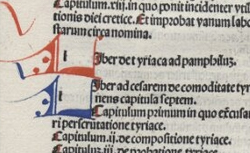 Capitulum.xiij. in quo ponit inciderter vtil
tionis dici cretice. Et improbat yanum labe
starum circa nomina.
Liber de tyriaca ad pamphilus.
Liber ad cesarem de comoditate tyr
nens capitula septem.
Capitulum primum in quo excusar
ri perscrutatione tyriace.
Capitulum.ij. de compositione tyriace.
Capitulum.iij. de probatione tyriace.